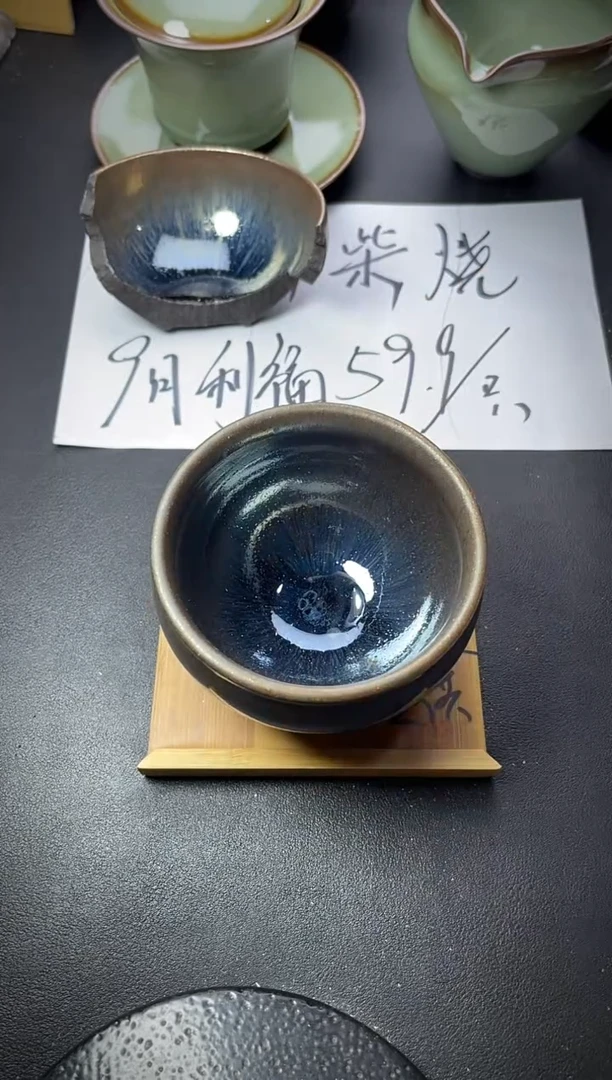 柴烧
9月利润59.9/只